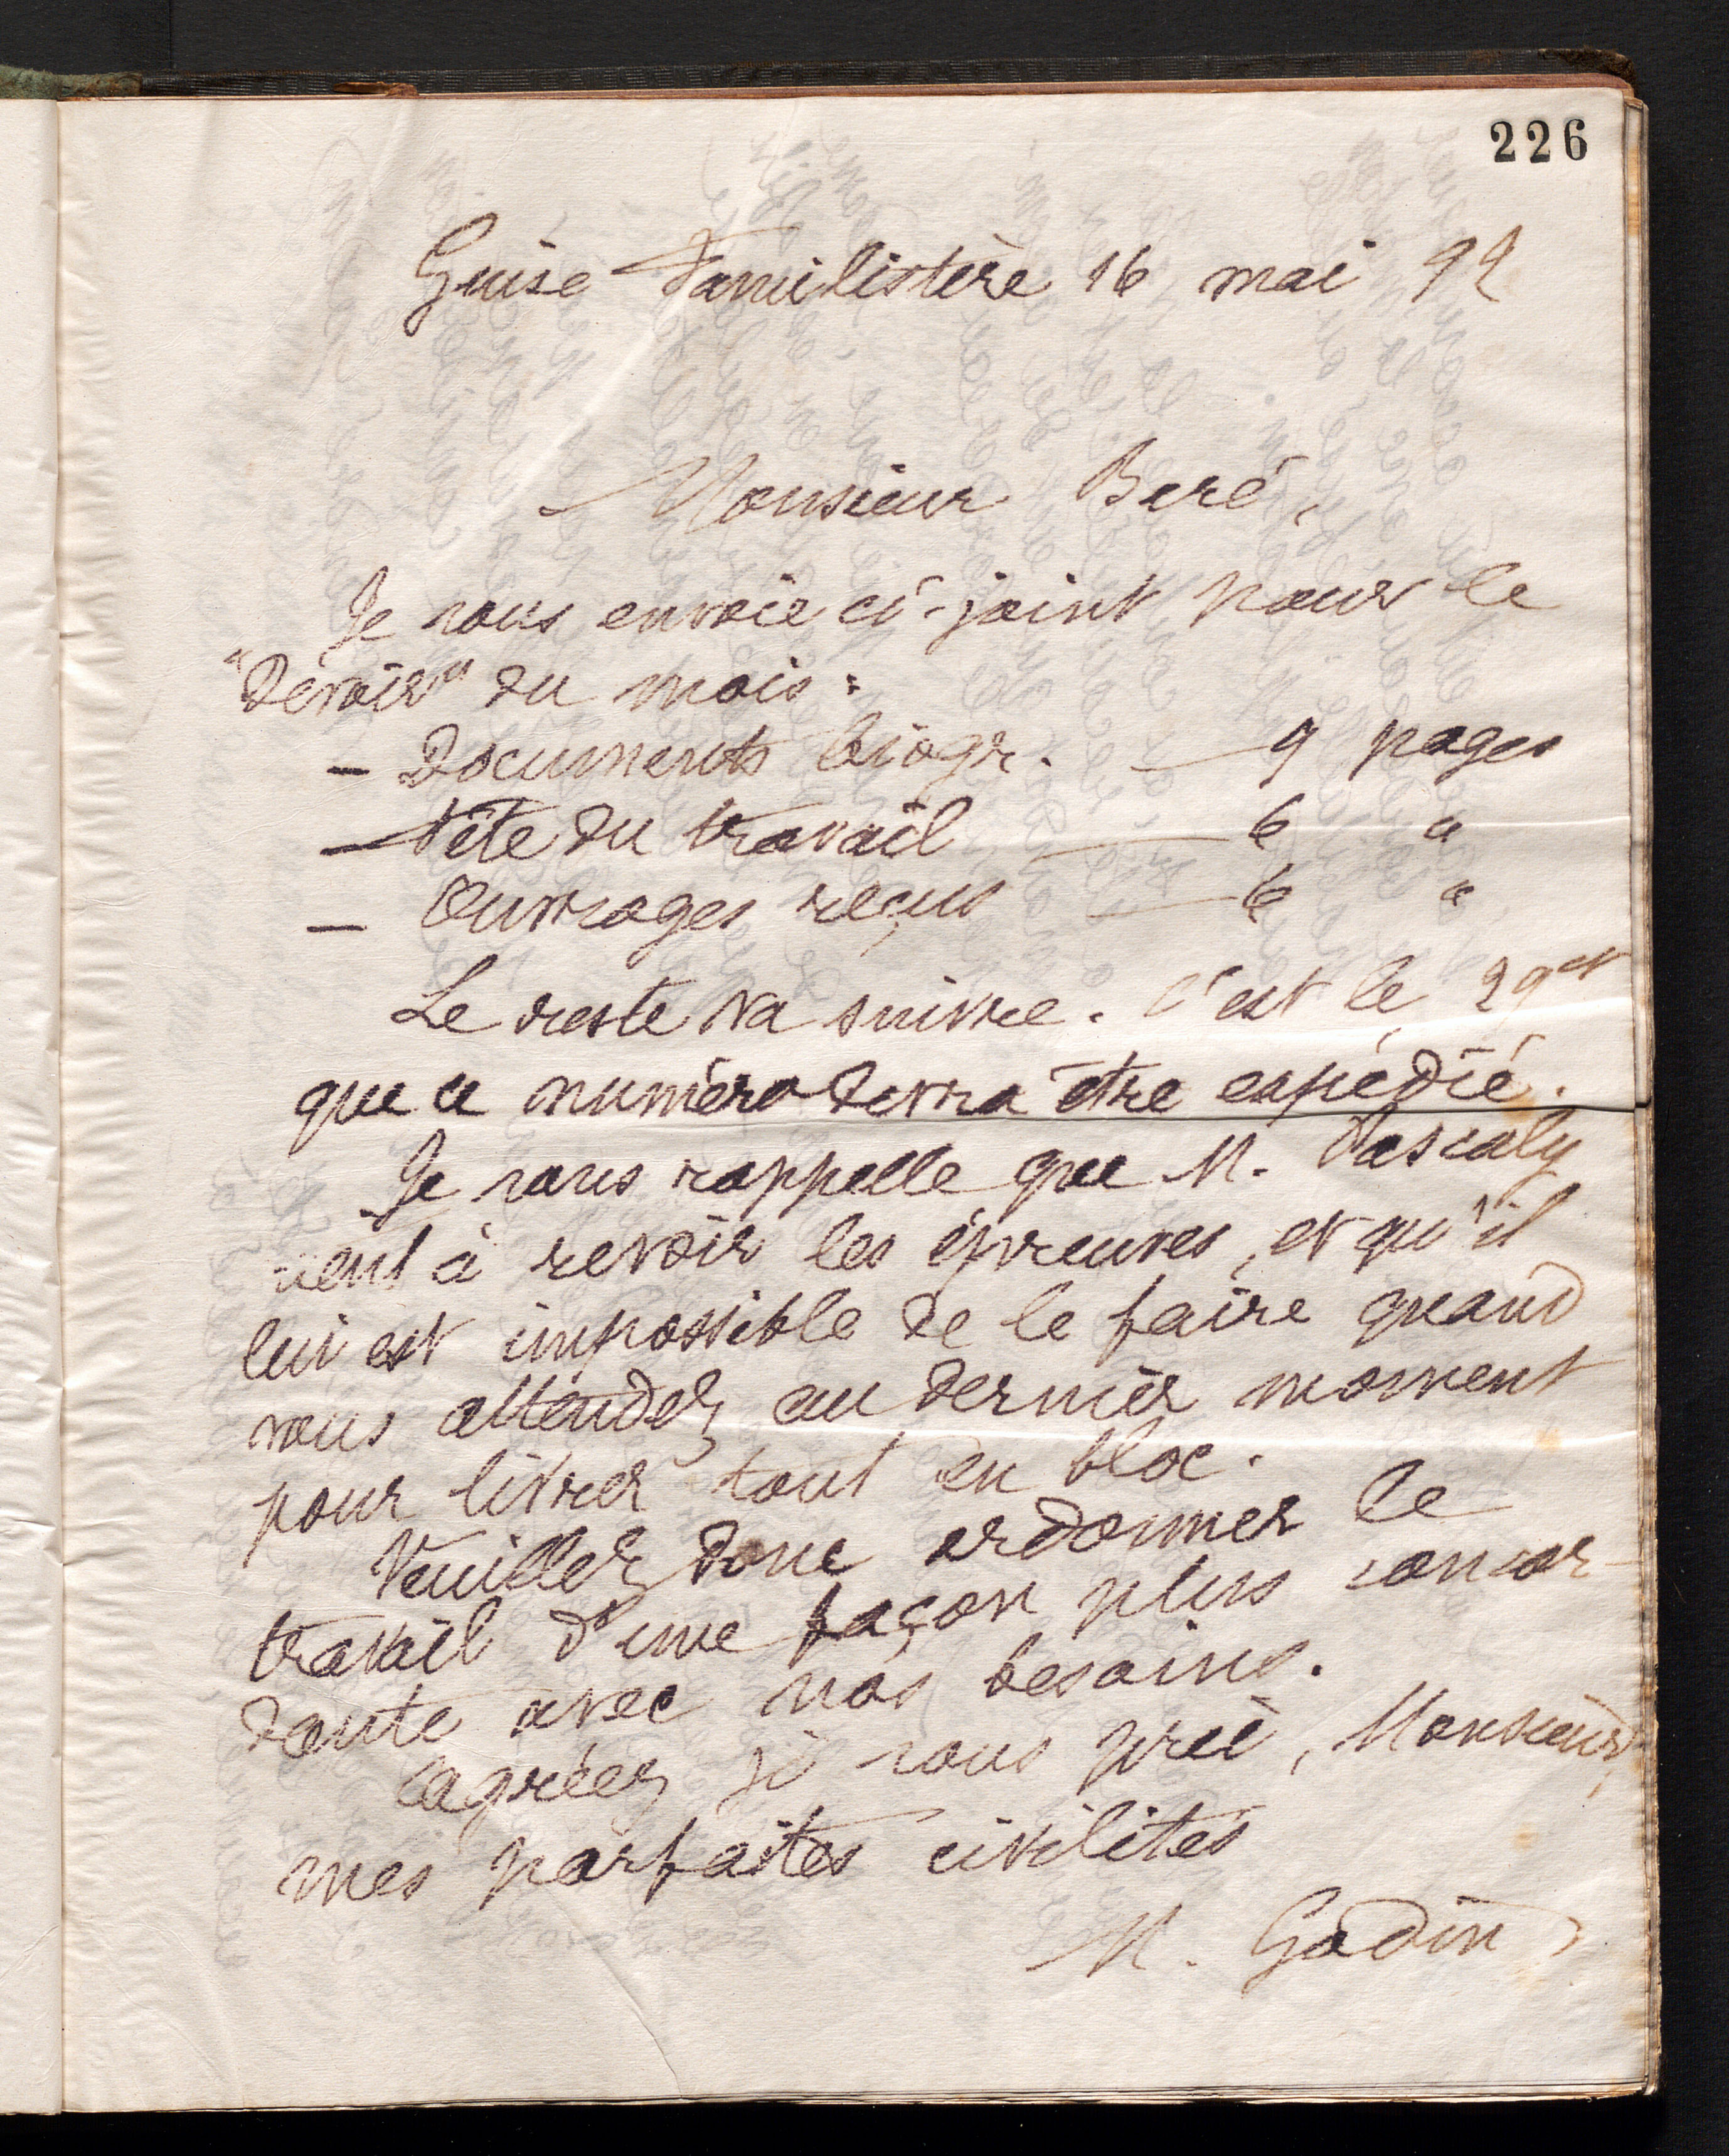 226
Guise Familistère 16 mai 92
Monsieur Beré,
Je vous envoie ci-joint pour le
"Devoir" du mois :
— Documents biogr. — 9 pages
— Fête du travail — 6 "
— Ouvrages reçus — 6 "
Le reste va suivre. C'est le 29 ct
que ce numéro devra être expédié.
Je vous rappelle que M. Pascaly
tient à revoir les épreuves, et qu'il
lui est impossible de le faire quand
vous attendez au dernier moment
pour livrer tout en bloc.
Veuillez donc ordonner le
travail d'une façon plus concor-
dante avec nos besoins.
Agréez je vous prie, Monsieur,
mes parfaites civilités
M. Godin